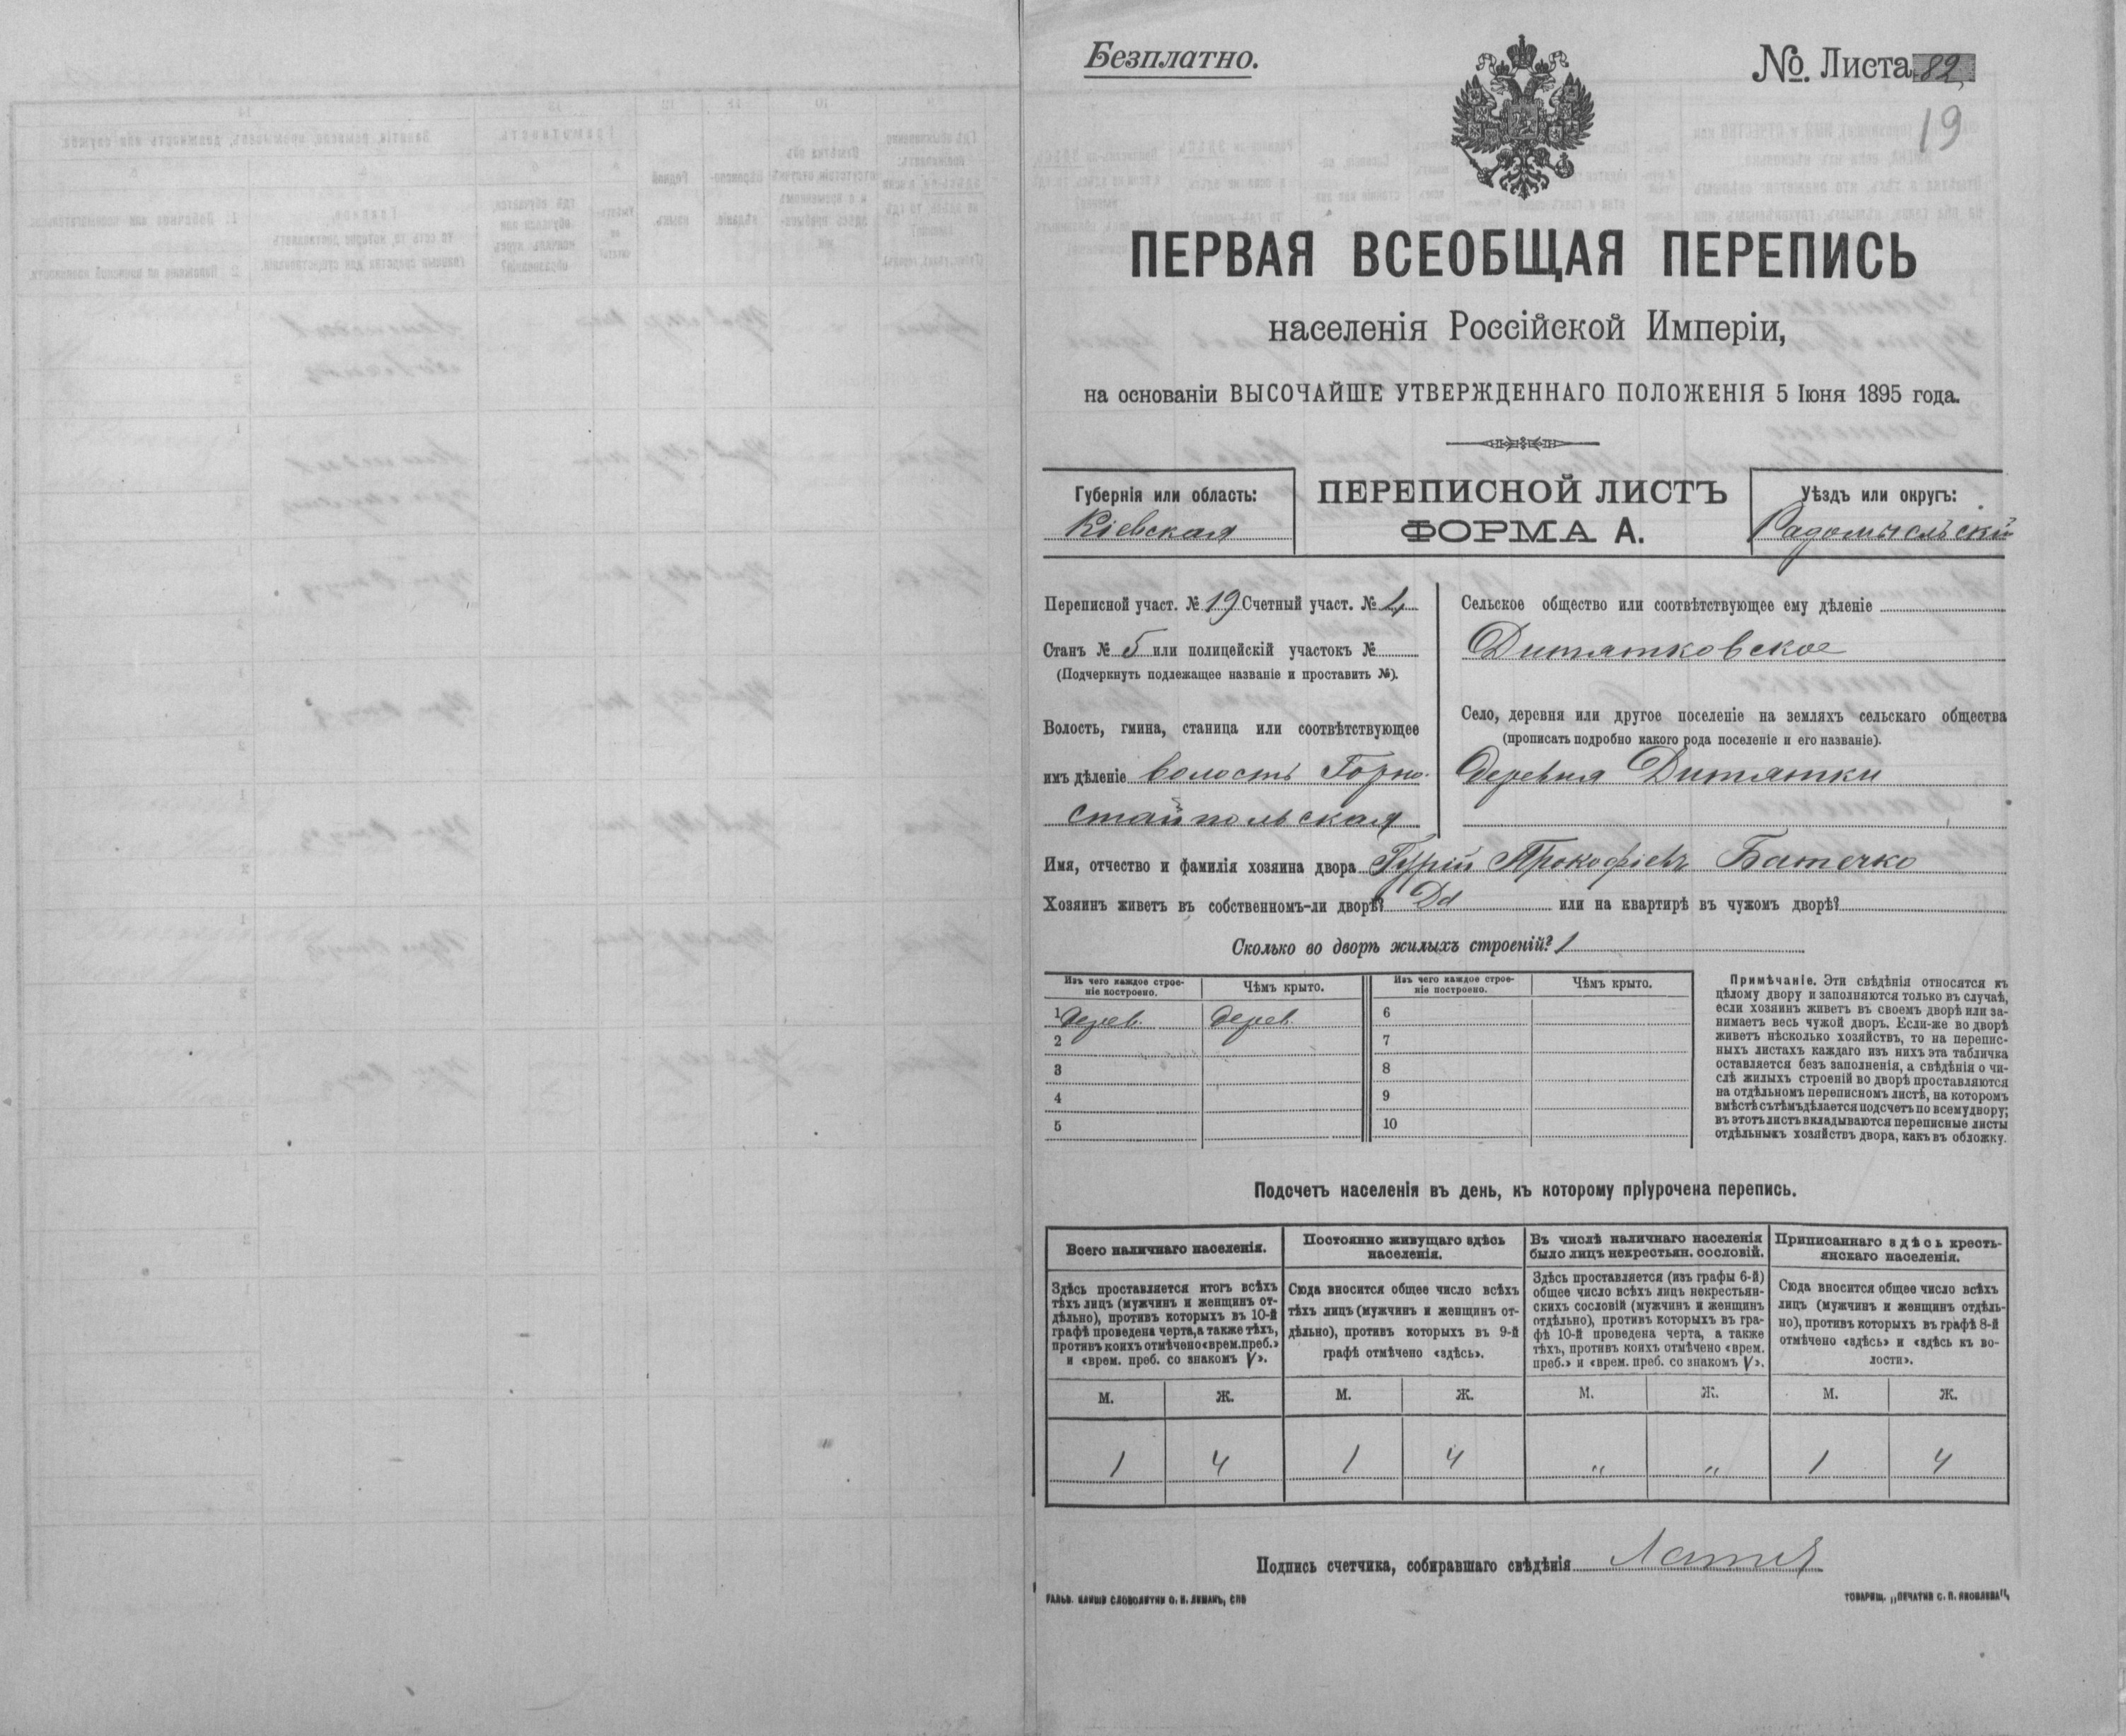 Безплатно.
№. Листа 82
19
ПЕРВАЯ ВСЕОБЩАЯ ПЕРЕПИСЬ
населенія Россійской Имперіи,
на основаніи ВЫСОЧАЙШЕ УТВЕРЖДЕННАГО ПОЛОЖЕНІЯ 5 Іюня 1895 года.
Губернія или область:
Кіевская
ПЕРЕПИСНОЙ ЛИСТЪ
ФОРМА А.
Уѣздъ или округъ:
Радомысльскій
Переписной участ. № 19 Счетный участ. № 4
Станъ № 5 или полицейскій участокъ №
(Подчеркнуть подлежащее названіе и проставить №).
Волость, гмина, станица или соотвѣтствующее
имъ дѣленіе волость Горно-
стайпольская
Сельское общество или соотвѣтствующее ему дѣленіе
Дитятковское
Село, деревня или другое поселеніе на земляхъ сельскаго общества
(прописать подробно какого рода поселеніе и его названіе).
Деревня Дитятки
Имя, отчество и фамилія хозяина двора Гурій Прокофіевъ Батечко
Хозяинъ живетъ въ собственномъ-ли дворѣ? Да или на квартирѣ въ чужомъ дворѣ?
Сколько во дворѣ жилыхъ строеній? 1
Изъ чего каждое строе-
ніе построено.
Чѣмъ крыто.
Изъ чего каждое строе-
ніе построено.
Чѣмъ крыто.
1 Дерев. Дерев. 6
2 7
3 8
4 9
5 10
Примѣчаніе. Эти свѣдѣнія относятся къ
цѣлому двору и заполняются только въ случаѣ,
если хозяинъ живетъ въ своемъ дворѣ или за-
нимаетъ весь чужой дворъ. Если-же во дворѣ
живетъ нѣсколько хозяйствъ, то на перепис-
ныхъ листахъ каждаго изъ нихъ эта табличка
оставляется безъ заполненія, а свѣдѣнія о чи-
слѣ жилыхъ строеній во дворѣ проставляются
на отдѣльномъ переписномъ листѣ, на которомъ
вмѣстѣ съ тѣмъ дѣлается подсчетъ по всему двору;
въ этотъ листъ вкладываются переписные листы
отдѣльныхъ хозяйствъ двора, какъ въ обложку.
Подсчетъ населенія въ день, къ которому пріурочена перепись.
Всего наличнаго населенія.
Здѣсь проставляется итогъ всѣхъ
тѣхъ лицъ (мужчинъ и женщинъ от-
дѣльно), противъ которыхъ въ 10-й
графѣ проведена черта, а также тѣхъ,
противъ коихъ отмѣчено «врем. преб.»
и «врем. преб. со знакомъ V».
Постоянно живущаго здѣсь
населенія.
Сюда вносится общее число всѣхъ
тѣхъ лицъ (мужчинъ и женщинъ от-
дѣльно), противъ которыхъ въ 9-й
графѣ отмѣчено «здѣсь».
Въ числѣ наличнаго населенія
было лицъ некрестьян. сословій.
Здѣсь проставляется (изъ графы 6-й)
общее число всѣхъ лицъ некрестьян-
скихъ сословій (мужчинъ и женщинъ
отдѣльно), противъ которыхъ въ гра-
фѣ 10-й проведена черта, а также
тѣхъ, противъ коихъ отмѣчено «врем.
преб.» и «врем. преб. со знакомъ V».
Приписаннаго здѣсь кресть-
янскаго населенія.
Сюда вносится общее число всѣхъ
лицъ (мужчинъ и женщинъ отдѣль-
но), противъ которыхъ въ графѣ 8-й
отмѣчено «здѣсь» и «здѣсь къ во-
лости».
М. Ж. М. Ж. М. Ж. М. Ж.
1 4 1 4 " " 1 4
Подпись счетчика, собиравшаго свѣдѣнія
ТОВАРИЩ. „ПЕЧАТНЯ С. П. ЯКОВЛЕВА",